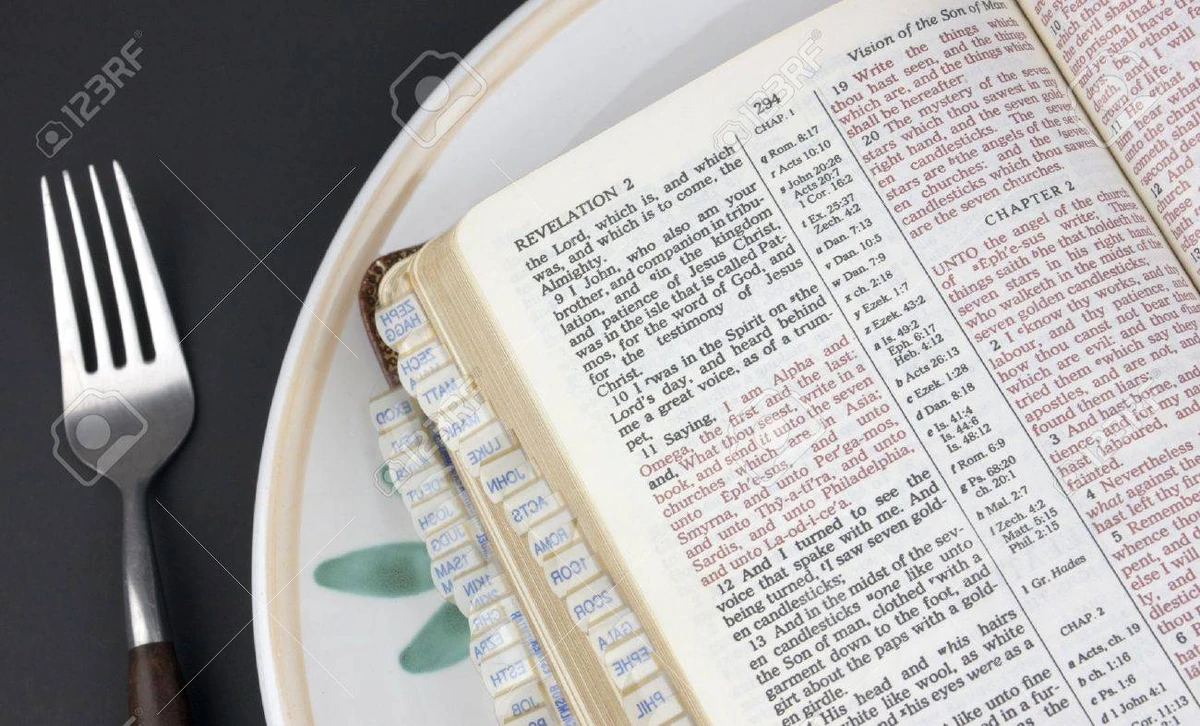 123RF
REVELATION 2
the Lord, which is, and which
was, and which is to come, the
Almighty.
9 I John, who also am your
brother, and companion in tribu-
lation, and in the kingdom
and patience of Jesus Christ,
was in the isle that is called Pat-
mos, for the word of God, and
for the testimony of Jesus
Christ.
10 I was in the Spirit on the
Lord's day, and heard behind
me a great voice, as of a trum-
pet,
11 Saying, I am Alpha and
Omega, the first and the last:
and, What thou seest, write in a
book, and send it unto the seven
churches which are in Asia;
unto Eph'e-sus, and unto
Smyrna, and unto Per'ga-mos,
and unto Thy-a-ti'ra, and unto
Sardis, and unto Philadelphia,
and unto La-od-i-ce'a.
12 And I turned to see the
voice that spake with me. And
being turned, I saw seven gold-
en candlesticks;
13 And in the midst of the sev-
en candlesticks one like unto
the Son of man, clothed with a
garment down to the foot, and
girt about the paps with a gold-
en girdle.
His head and his hairs
white like wool, as white
and his eyes were as a
like unto fine
in a fur-
294
CHAP. 1
q Rom. 8:17
r Acts 10:10
s John 20:26
Acts 20:7
1 Cor. 16:2
t Ex. 25:37
Zech. 4:2
u Dan. 7:13
v Dan. 10:5
w Dan. 7:9
x ch. 2:18
y Ezek. 1:7
z Ezek. 43:2
a Is. 49:2
Eph. 6:17
Heb. 4:12
b Acts 26:13
c Ezek. 1:28
d Dan. 8:18
e Is. 41:4
Is. 44:6
Is. 48:12
f Rom. 6:9
g Ps. 68:20
ch. 20:1
h Mal. 2:7
i Zech. 4:2
Matt. 5:15
Phil. 2:15
1 Gr. Hades
CHAP. 2
a Acts, ch. 19
b ch. 1:16
c Ps. 1:6
d 1 John 4:1
Vision of the Son of Man
19 Write the things which
thou hast seen, and the things
which are, and the things which
shall be hereafter;
20 The mystery of the seven
stars which thou sawest in my
right hand, and the seven gold-
en candlesticks. The seven
stars are the angels of the seven
churches: and the seven
candlesticks which thou sawest
are the seven churches.
CHAPTER 2
UNTO the angel of the church
of Eph'e-sus write; These
things saith he that holdeth the
seven stars in his right hand,
who walketh in the midst of the
seven golden candlesticks;
2 I know thy works, and thy
labour, and thy patience, and
how thou canst not bear them
which are evil: and thou hast
tried them which say they are
apostles, and are not, and hast
found them liars:
3 And hast borne, and
tience, and for my
hast laboured, and
fainted.
4 Nevertheless
what against
hast left thy
5 Remember
whence
pent, and
else I will
ly, and
dlestick
6
ZEPH
HAGG
ZECH
MATT
MARK
LUKE
JOHN
ACTS
ROMA
1COR
2COR
GALA
EPHE
PHIL
EXOD
DEUT
JOSH
JUDG
1SAM
1KIN
EZRA
ESTH
JOB